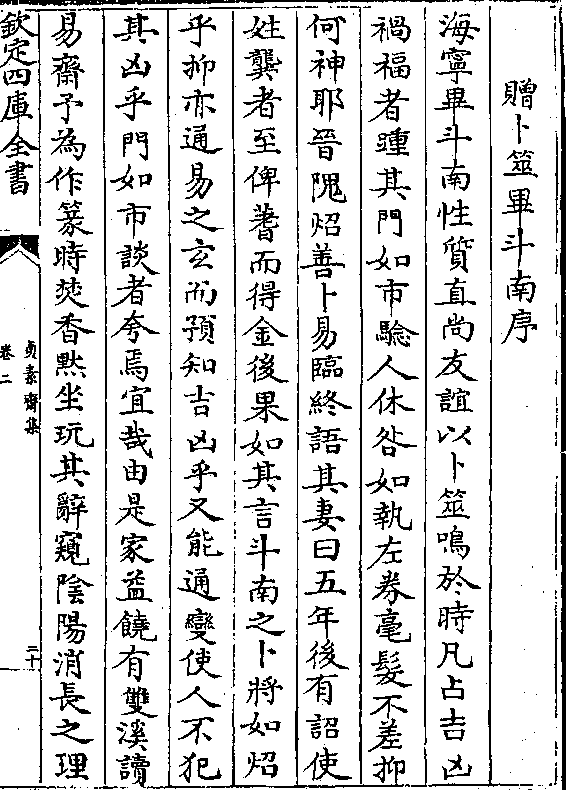 贈卜筮畢斗南序
海寧畢斗南性質直尚友誼以卜筮鳴於時凡占吉凶
禍福者踵其門如市驗人休咎如執左券毫髮不差抑
何神耶晉隗炤善卜易臨終語其妻曰五年後有詔使
姓龔者至俾蓍而得金後果如其言斗南之卜將如炤
乎抑亦通易之玄而預知吉凶乎又能通變使人不犯
其凶乎門如市談者夸焉宜哉由是家益饒有雙溪讀
易齋予為作篆時焚香黙坐玩其辭窺陰陽消長之理
欽定四庫全書
貞素齋集
卷二
二十